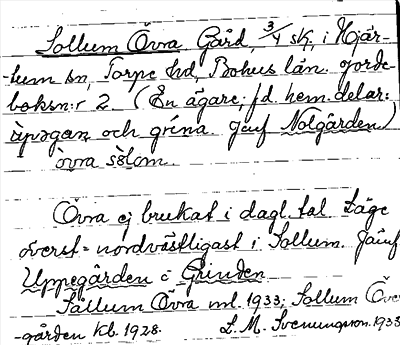 Sollum Övra Gård, 3/4 sk., i Hjär-
tum sn, Torpe hd, Bohus län. Jorde
boksn:r 2. (En ägare; fd. hem.delar:
och grina. Jämf Nolgården.)
övra sölom.
Övra ej brukat i dagl. tal. Läge
överst = nordvästligast i Sollum. Jämf
Uppegården o Grinden
Sällum Övra ml. 1933; Sollum Över
-gården Kb. 1928. L. M. Svenungsson. 1933